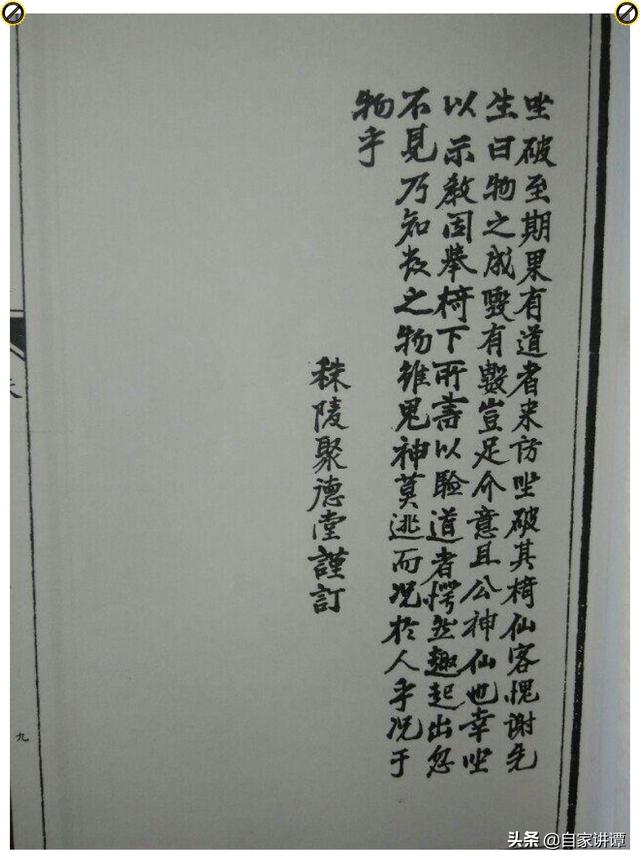 坐破至期果有道者来訪坐破其椅仙客愧謝先
生曰物之成毀有數豈足介意且公神仙也幸坐
以示教因舉椅下所書以驗道者愕然趣起出忽
不見乃知数之物雖鬼神莫逃而况於人乎况于
物乎
秣陵聚德堂謹訂
九
头条 @自家讲谭